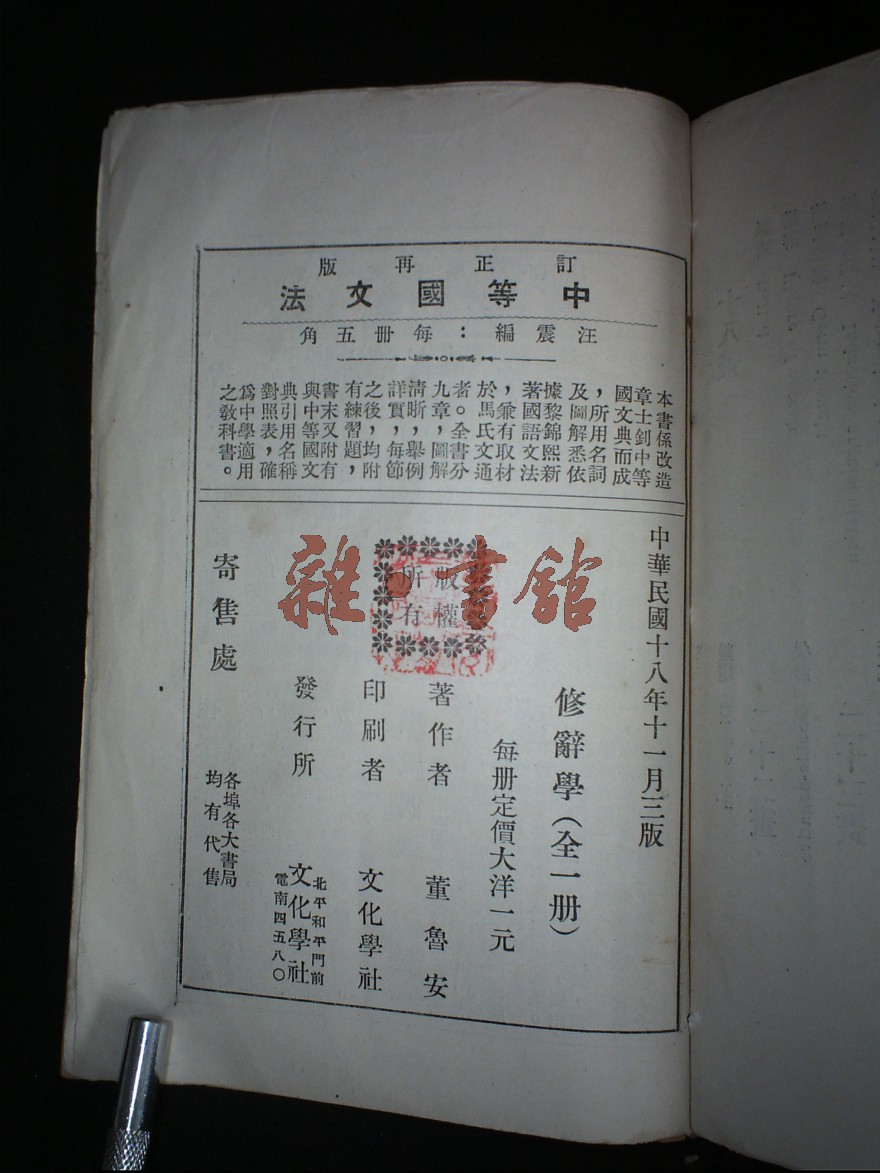 訂正再版
中等國文法
汪震編：每冊五角
本書係改造
章士釗中等
國文典而成
，所用名詞
及圖解悉依
據黎錦熙新
著國語文法
，兼有取材
於馬氏文通
者。全書分
九章，圖解
清晰，舉例
詳實，每節
之後，均附
有練習題，
書末又附有
與中等國文
典引用名稱
對照表，確
爲中學適用
之教科書。
中華民國十八年十一月三版
修辭學（全一冊）
每冊定價大洋一元
版權
所有
著作者 董魯安
印刷者 文化學社
發行所 文化學社
北平和平門前
電南四五八〇
寄售處
各埠各大書局
均有代售
雜·書館